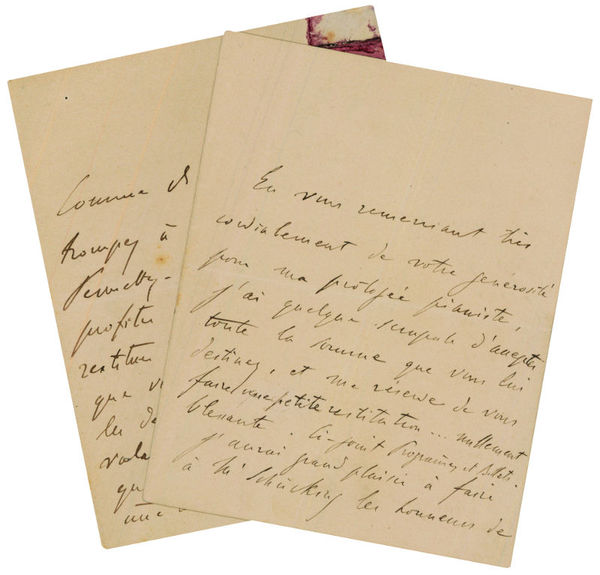 Comme d
trompez à
Permettez-
profiter
restituer
que v
les de
vala
qu
une
En vous remerciant très
cordialement de votre générosité
pour ma protégée pianiste,
j'ai quelque scrupule d'accepter
toute la somme que vous lui
destinez, et me réserve de vous
faire une petite restitution... nullement
blessante. Ci-joint Programmes et Billets.
j'aurai grand plaisir à faire
à Mr Schücking les honneurs de